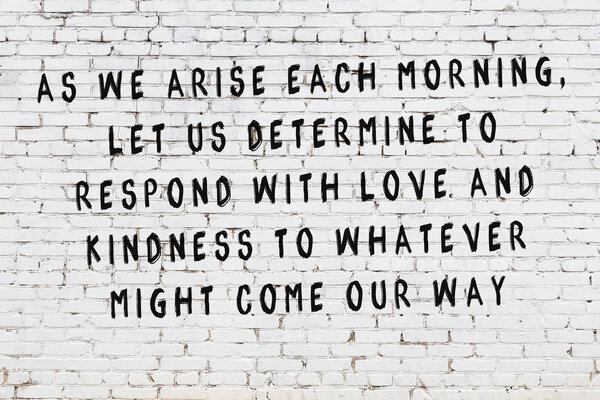 AS WE ARISE EACH MORNING,
LET US DETERMINE TO
RESPOND WITH LOVE AND
KINDNESS TO WHATEVER
MIGHT COME OUR WAY